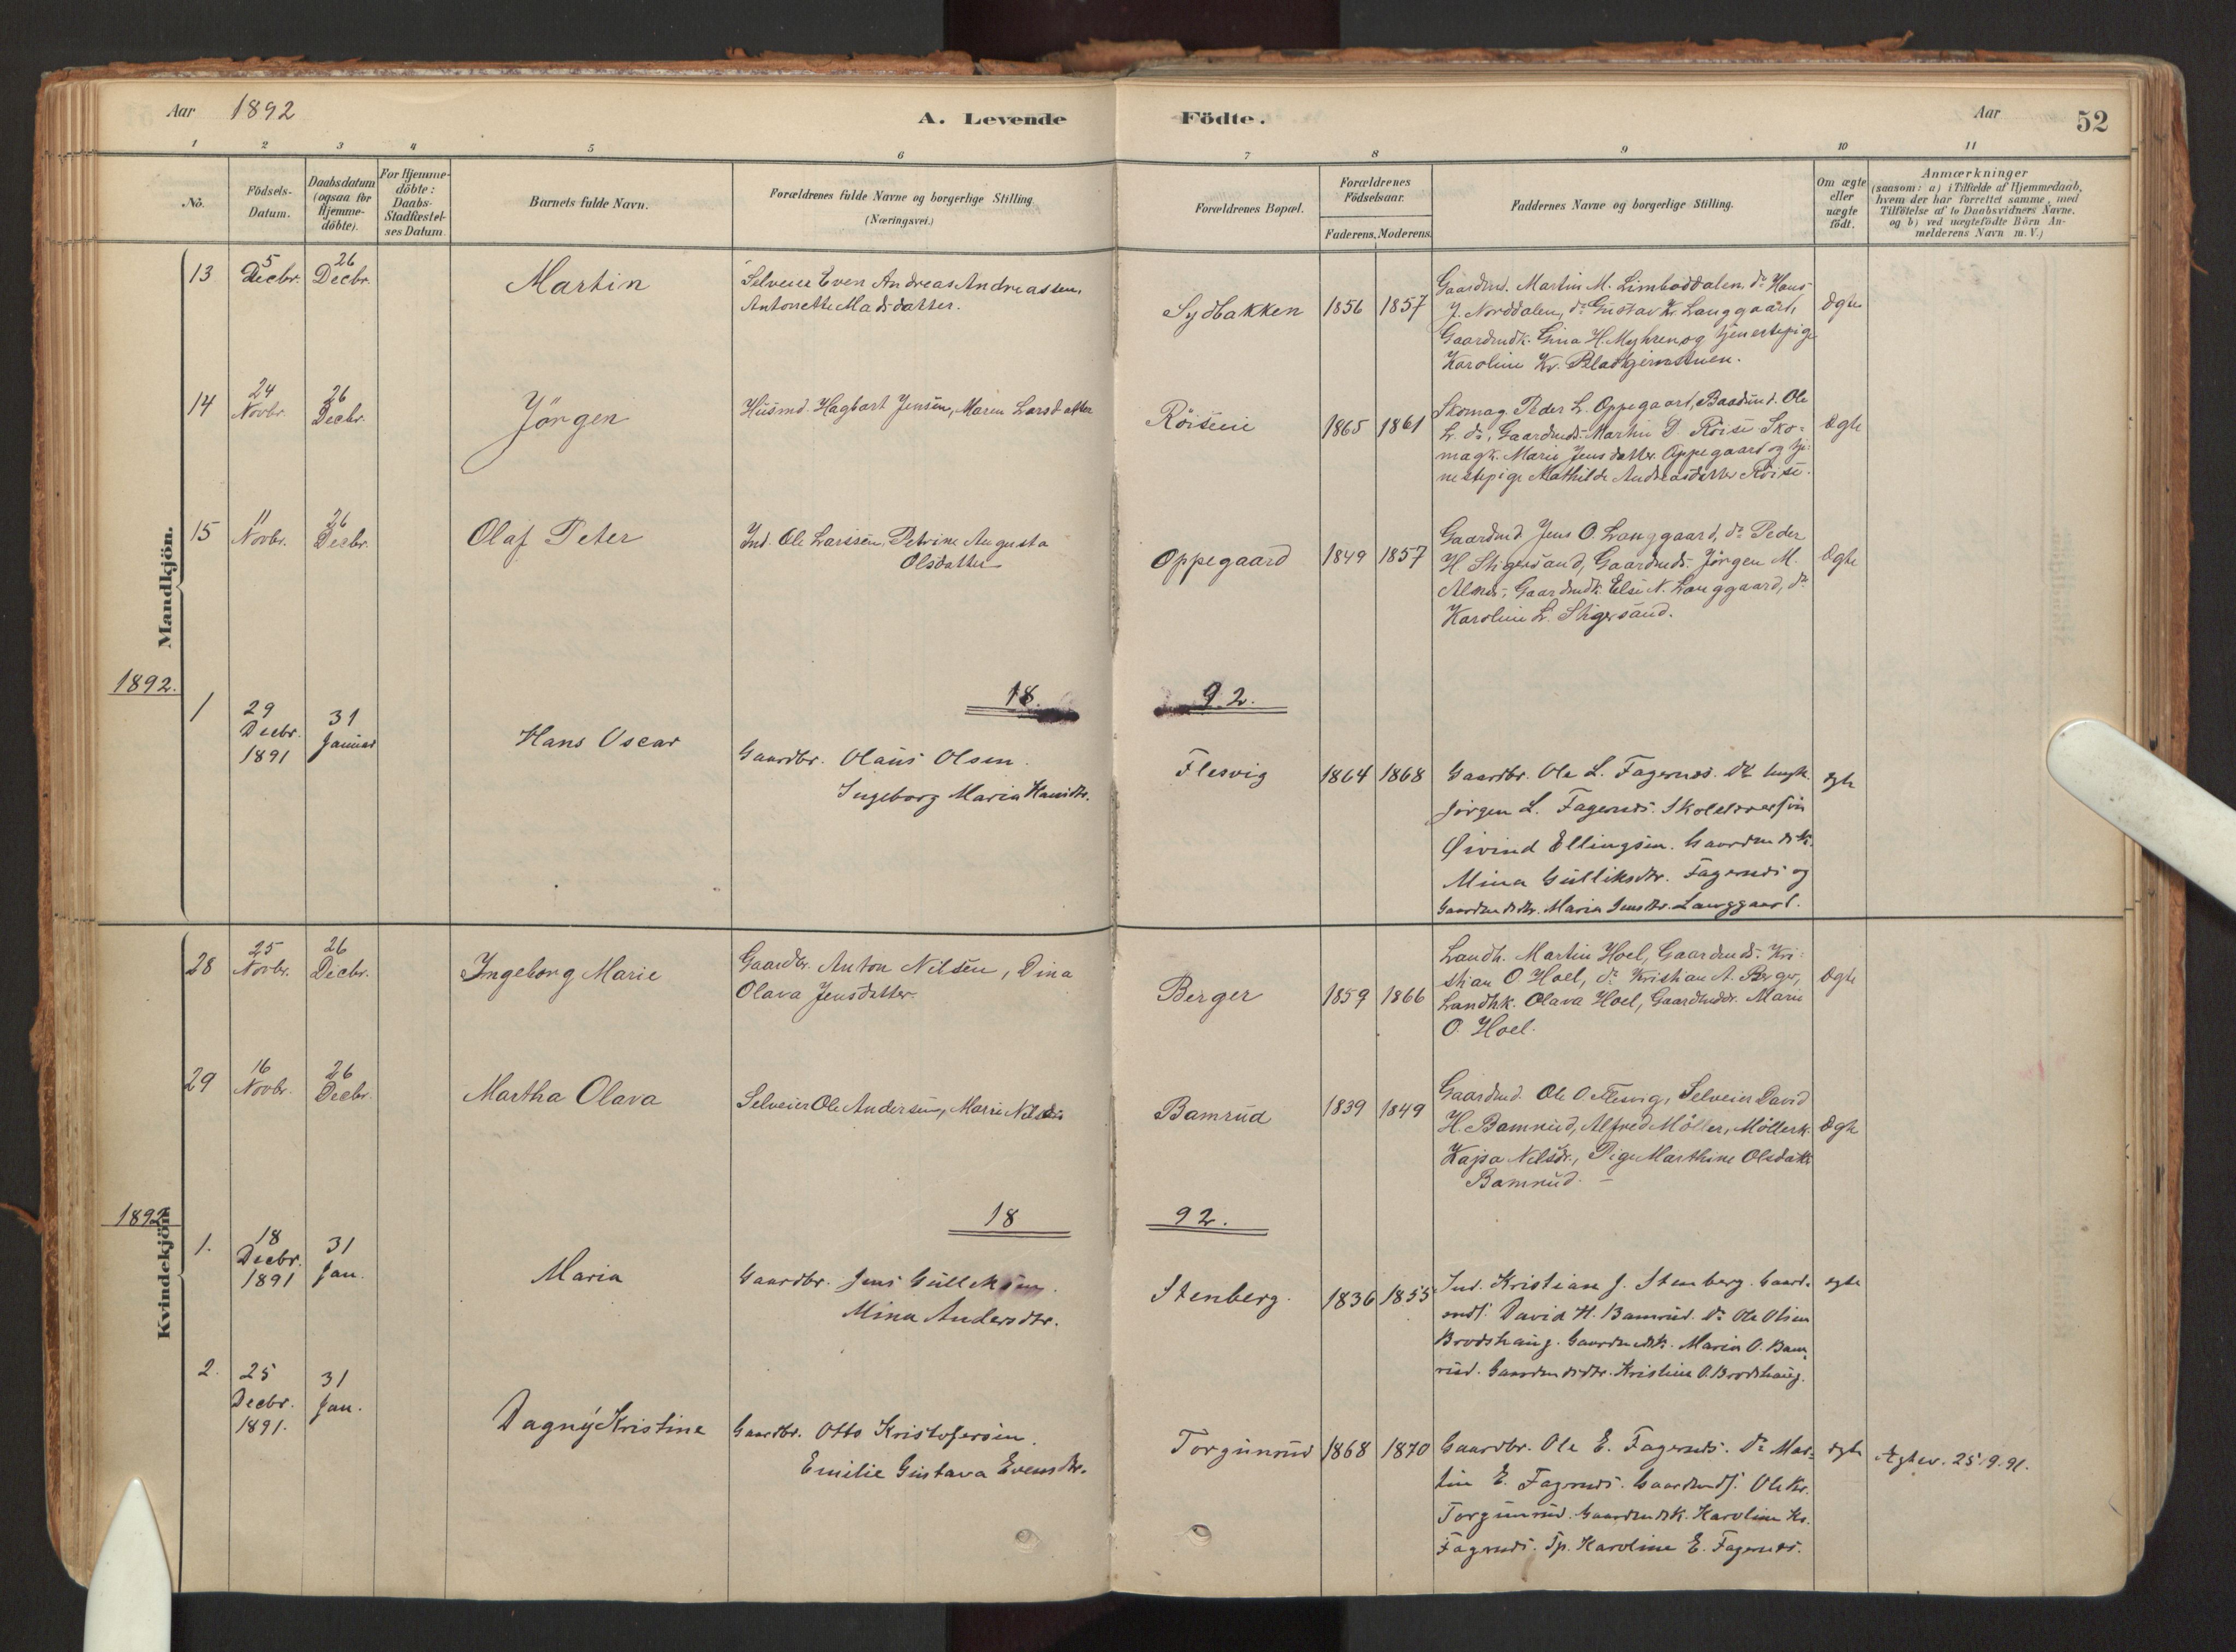 Aar 1892
A. Levende Födte.
Aar
52
1 2 3 4 5 6 7 8 9 10 11
Nö.
Födsels-
Datum.
Daabsdatum
(ogsaa for
Hjemme-
döbte).
For Hjemme-
döbte:
Daabs-
Stadfæstel-
ses Datum.
Barnets fulde Navn.
Forældrenes fulde Navne og borgerlige Stilling
(Næringsvei.)
Forældrenes Bopæl.
Forældrenes
Födselsaar.
Faderens. Moderens.
Faddernes Navne og borgerlige Stilling.
Om ægte
eller
uægte
födt.
Anmærkninger
(saasom: a) i Tilfælde af Hjemmedaab,
hvem der har forrettet samme, med
Tilföielse af to Daabsvidners Navne,
og b) ved uægtefödte Börn An-
melderens Navn m. V.)
Mandkjön.
13
5
Decbr.
26
Decbr.
Martin
Selveier Even Andreas Andreassen,
Antonette Madsdatter.
Sydbakken
1856 1857
Gaardmd. Martin M. Limboddalen, do Hans
J. Norddalen, do Gustav K. Langgaard,
Gaardmdk. Gina H. Myhren og tjenestepige
Karoline Kr.
Ægte
14
24
Novbr.
26
Decbr.
Jörgen
Husmd. Hagbart Jensen, Maren Larsdatter
Röiseie
1865 1861
Skomag. Peder L. Oppegaard, Baadsmd. Ole
L. do, Gaardmds. Martin D. Röise Sko-
magk. Marie Jensdatter Oppegaard og tje-
nestepige Mathilde Andreasdatter Röise.
Ægte
15
11
Novbr.
26
Decbr.
Olaf Peter
Ind. Ole Larssen, Petrine Augusta
Olsdatter
Oppegaard
1849 1857
Gaardmd Jens O. Langgaard, do Peder
H. Stigersand, Gaardmds. Jörgen M.
Alnæs, Gaardmdk. Else N. Langgaard, do
Karoline L. Stigersand.
Ægte
1892.
18 92.
1
29
Decbr.
1891
31
Januar
Hans Oscar
Gaardbr. Olaus Olsen.
Ingeborg Maria Hansdtr.
Flesvig
1864 1868
Gaardbr. Ole L. Fagernes. do ungk.
Jörgen L. Fagernes. Skolelærer
Øivind Ellingsen. Gaardmdsk.
Mina Gulliksdtr. Fagernes og
Gaardmdsdtr. Maria Jensdtr. Langgaard.
ægte
Kvindekjön.
28
25
Novbr.
26
Decbr.
Ingeborg Marie
Gaardbr. Anton Nilsen, Dina
Olava Jensdatter.
Berger
1859 1866
Landh. Martin Hoel, Gaardmds. Kri-
stian O Hoel, do Kristian A. Berger,
Landhk. Olava Hoel, Gaardmddr. Marie
O. Hoel.
Ægte
29
16
Novbr.
26
Decbr.
Martha Olava
Selveier Ole Andersen, Marie Nilsdr.
Bamrud
1839 1849
Gaardmd. Ole O Flesvig, Selveier David
H. Bamrud, Alfred Möller, Möllerk.
Kajsa Nilsdr., Pige Marthine Olsdatter
Bamrud.
Ægte
1892
18 92.
1.
18
Decbr.
1891
31
Jan.
Maria
Gaardbr. Jens Gulleksen.
Mina Andersdtr.
Stenberg.
1836 1855
Ind. Kristian J. Stenberg. Gaard-
mds. David H. Bamrud. do Ole Olsen
Brodshaug. Gaardmdsk. Maria O. Bam-
rud. Gaardmdsdtr. Kristine O. Brodshaug.
ægte
2.
25
Decbr.
1891.
31
Jan.
Dagny Kristine
Gaardbr. Otto Kristofersen.
Emilie Gustava Evensdtr.
Torgunrud
1868 1870
Gaardbr. Ole E. Fagernes. do Mar-
tin E. Fagernes. Gaardmds. Ole Kr.
Torgunrud. Gaardmdsk. Karoline Kr.
Fagernes. Tp. Karoline E. Fagernes.
ægte
Ægtev. 25.9.91.